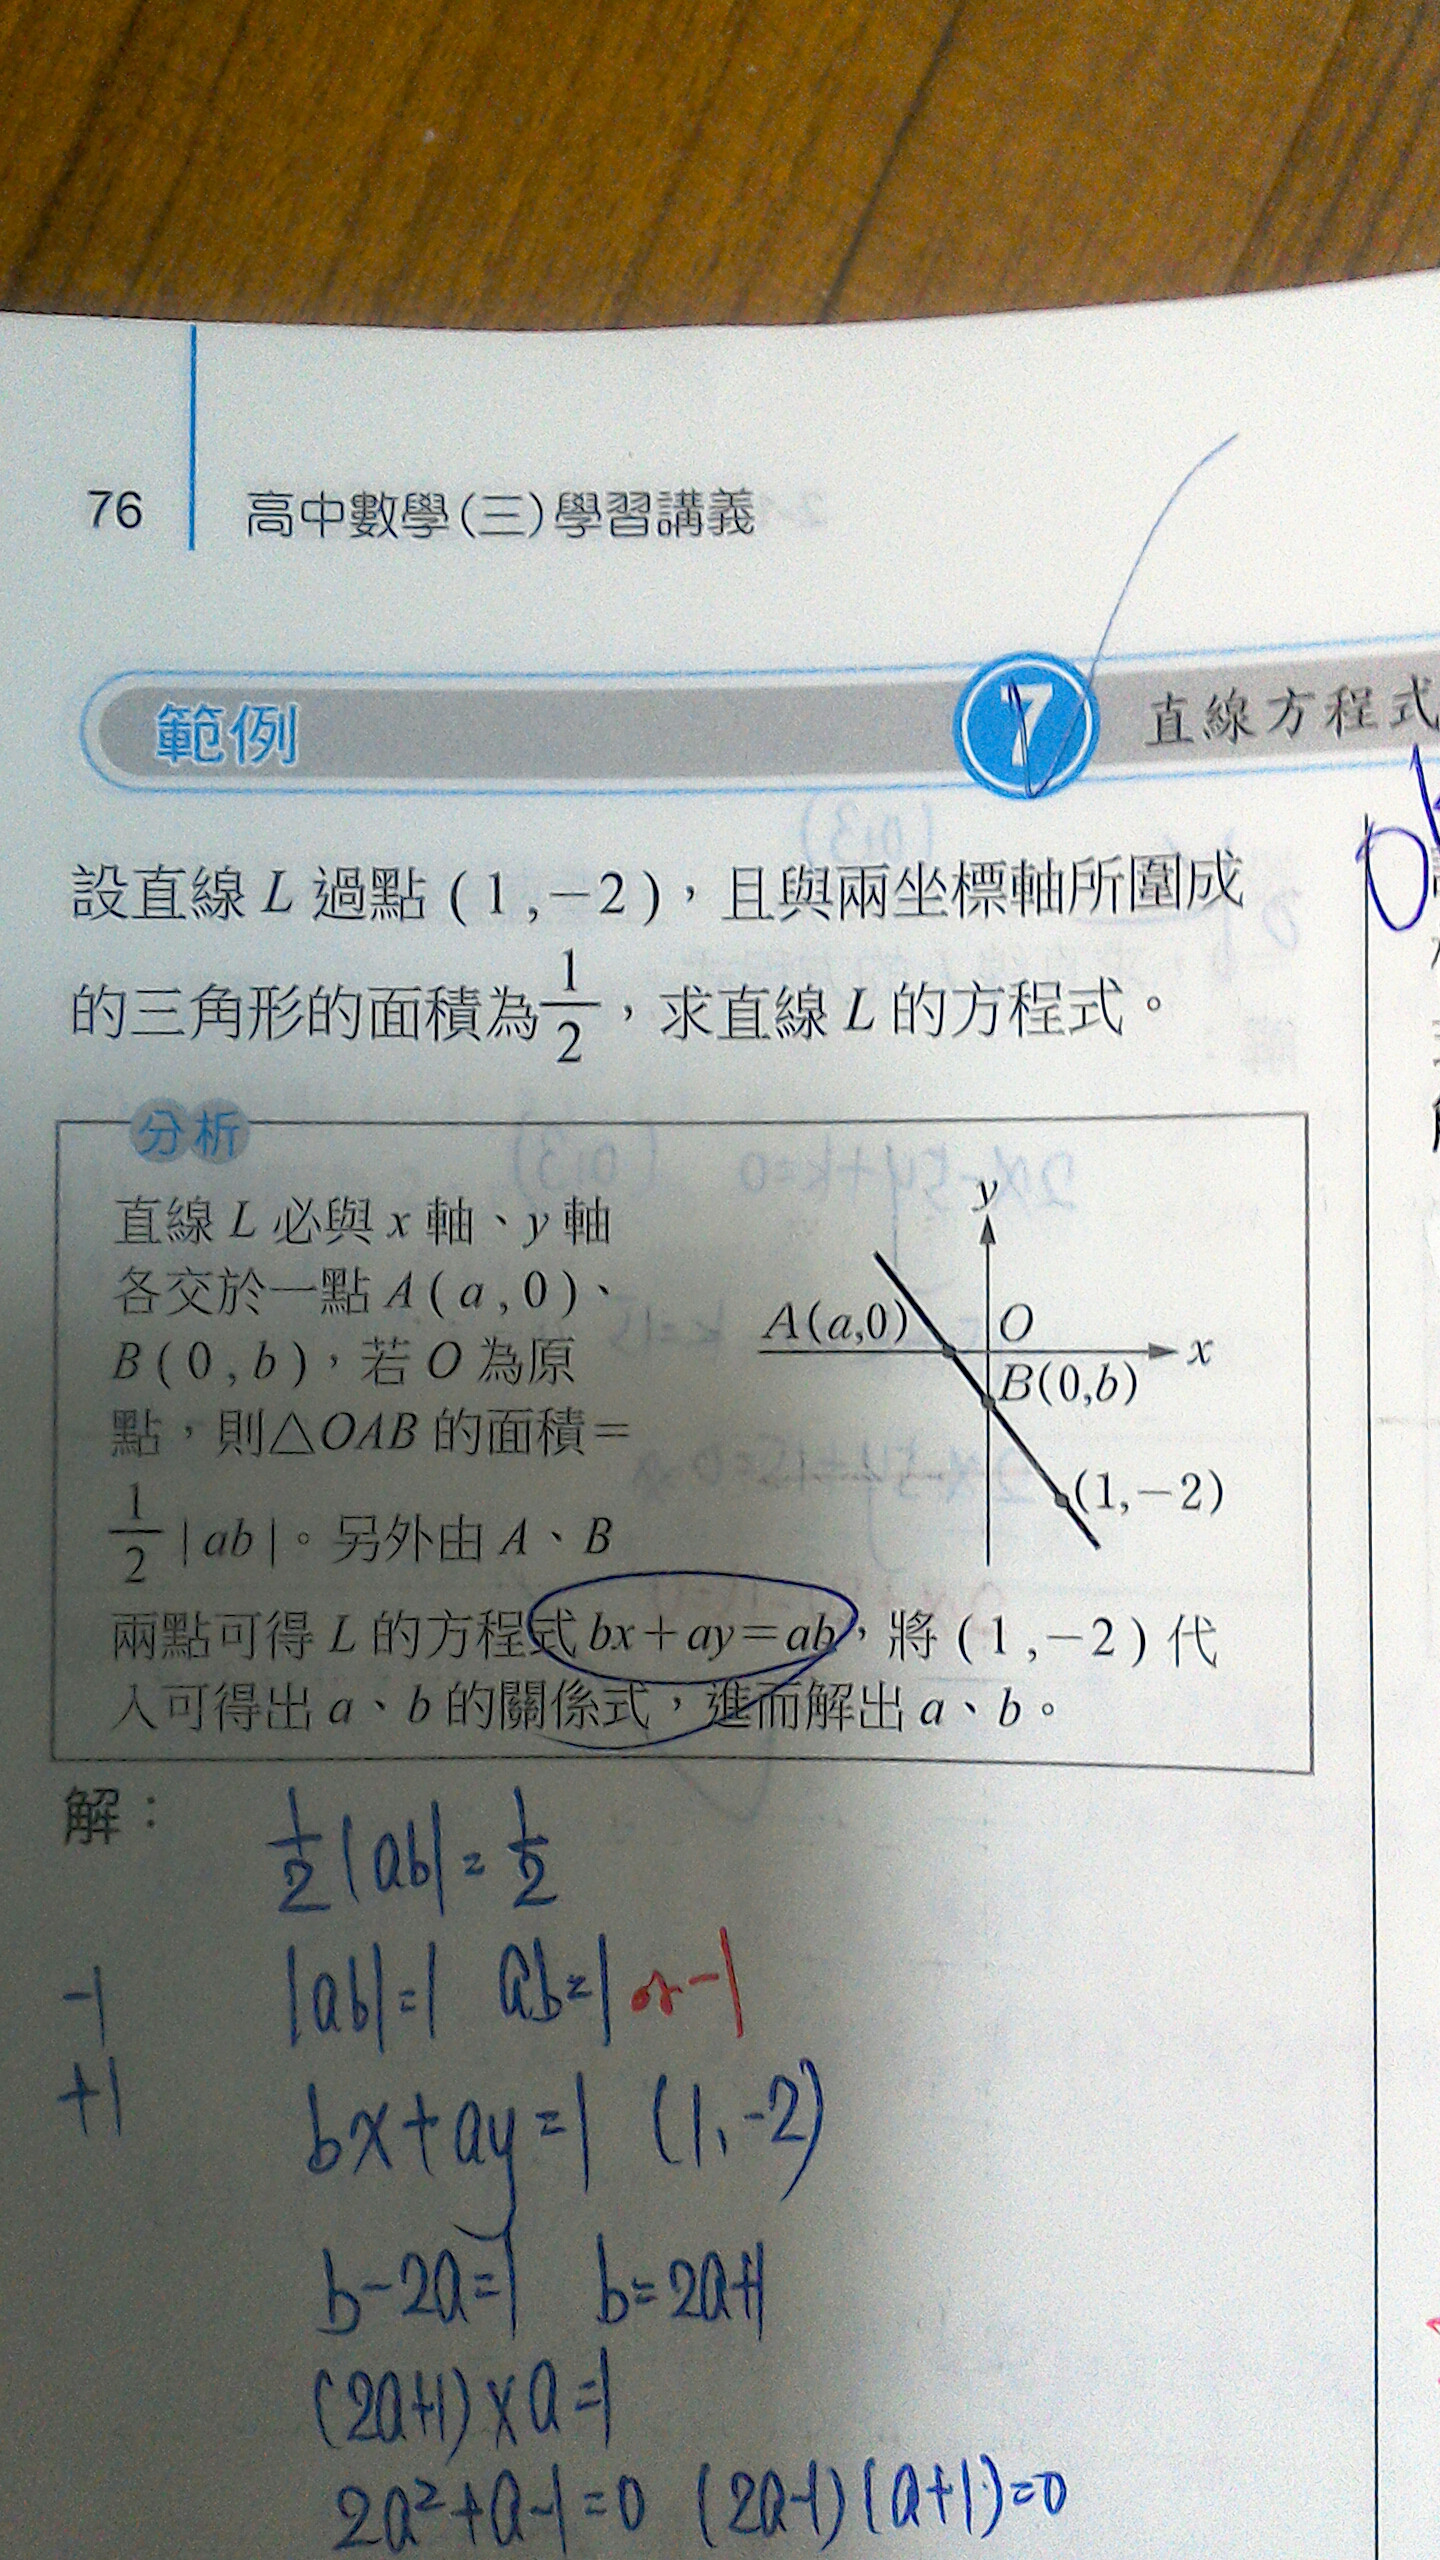 76 高中數學(三)學習講義
範例 7 直線方程式
設直線 L 過點 (1,−2),且與兩坐標軸所圍成
的三角形的面積為 1/2,求直線 L 的方程式。
分析
直線 L 必與 x 軸、y 軸
各交於一點 A(a,0)、
B(0,b),若 O 為原
點,則△OAB 的面積=
1/2 |ab|。另外由 A、B
兩點可得 L 的方程式 bx+ay=ab,將 (1,−2) 代
入可得出 a、b 的關係式,進而解出 a、b。
y
A(a,0) O
x
B(0,b)
(1,−2)
解:
1/2 |ab| = 1/2
-1 |ab|=1 ab=1 or -1
+1 bx+ay=1 (1,-2)
b-2a=1 b=2a+1
(2a+1)×a=1
2a²+a-1=0 (2a-1)(a+1)=0